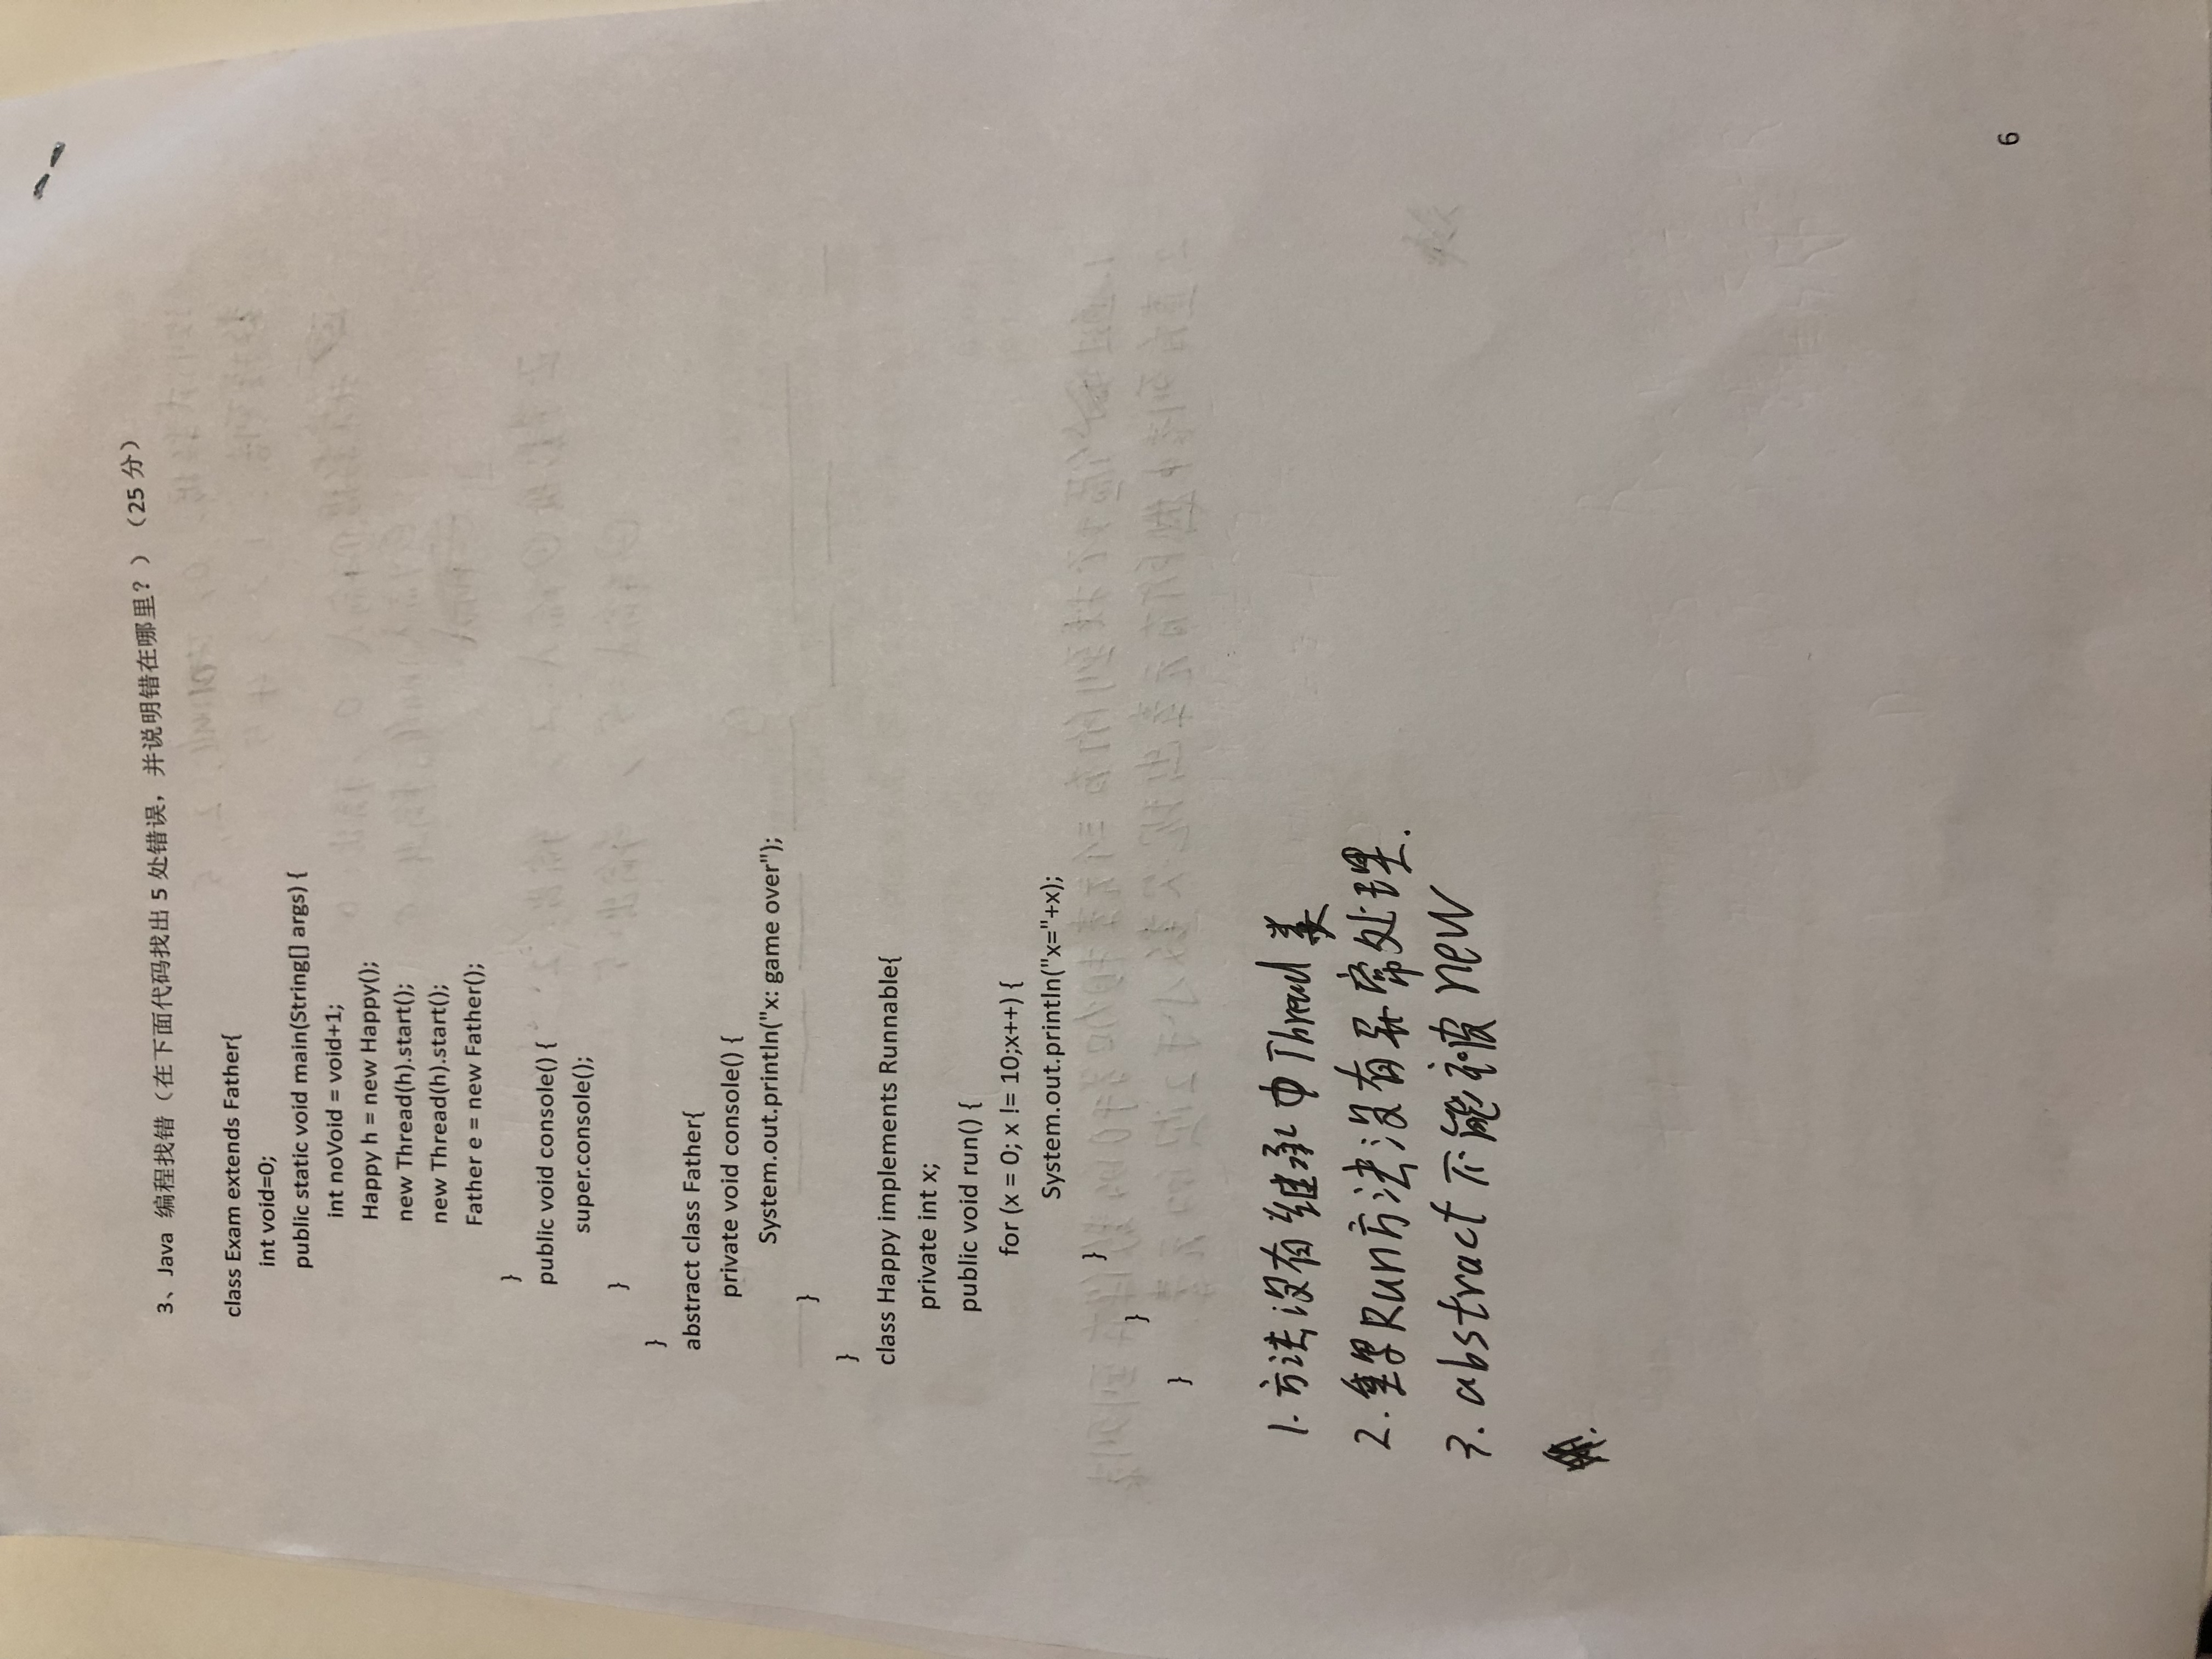 3、Java 编程找错（在下面代码找出 5 处错误，并说明错在哪里？）（25 分）
class Exam extends Father{
int void=0;
public static void main(String[] args) {
int noVoid = void+1;
Happy h = new Happy();
new Thread(h).start();
new Thread(h).start();
Father e = new Father();
}
public void console() {
super.console();
}
}
abstract class Father{
private void console() {
System.out.println("x: game over");
}
}
class Happy implements Runnable{
private int x;
public void run() {
for (x = 0; x != 10;x++) {
System.out.println("x="+x);
}
}
}
1. 方法没有继承中Thread类
2. 重写Run方法没有异常处理.
3. abstract 不能被 new
6